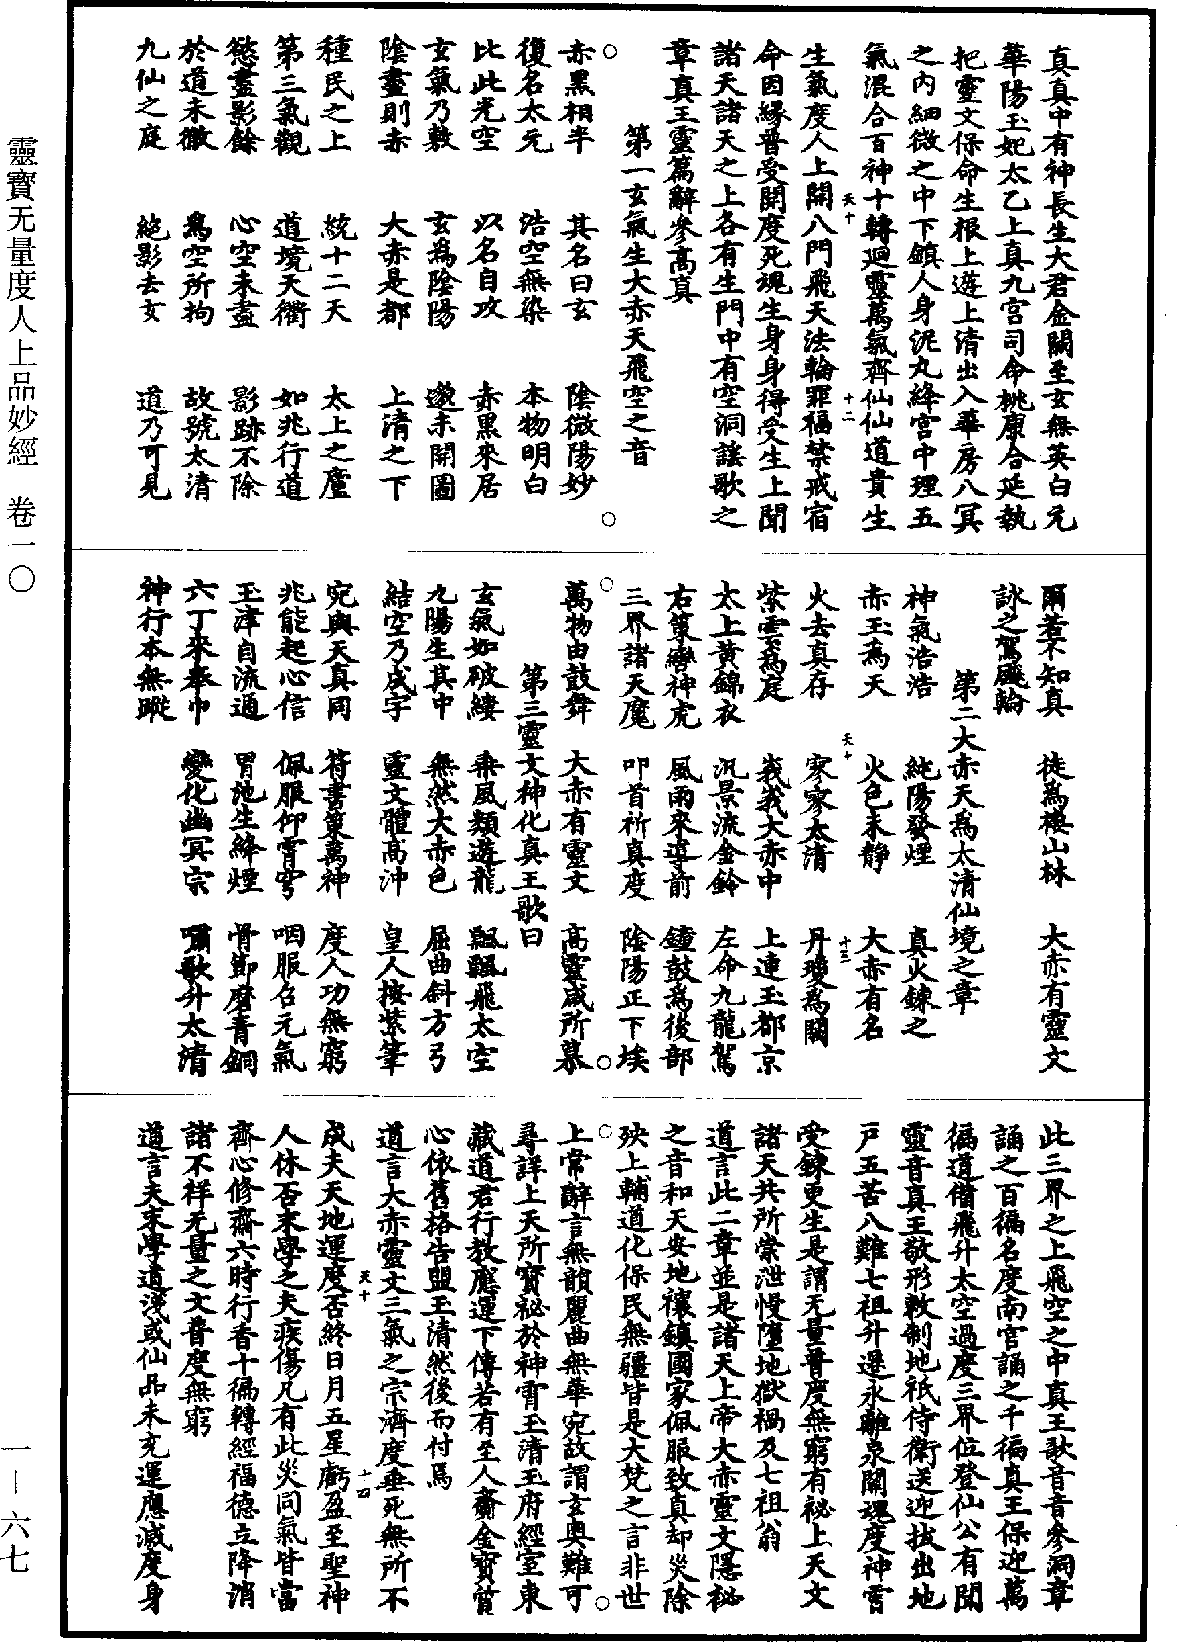 真真中有神長生大君金闕至玄無英白元
華陽玉妃太乙上真九宮司命桃康合延執
把靈文保命生根上遊上清出入華房八冥
之內細微之中下鎮人身泥丸絳宮中理五
氣混合百神十轉迴靈萬氣齊仙仙道貴生
天十 十二
生氣度人上開八門飛天法輪罪福禁戒宿
命因緣普受開度死魂生身身得受生上聞
諸天諸天之上各有生門中有空洞謠歌之
章真王靈篇辭參高真
第一玄氣生大赤天飛空之音
赤黑相半 其名曰玄 陰微陽妙
復名太元 浩空無染 本物明白
比此光空 以名自攻 赤黑來居
玄氣乃敷 玄為陰陽 邈未開圖
陰盡則赤 大赤是都 上清之下
種民之上 統十二天 太上之廬
第三氣觀 道境天衢 如兆行道
慾盡影餘 心空未盡 影跡不除
於道未徹 為空所拘 故號太清
九仙之庭 絕影去文 道乃可見
爾若不知真 徒為棲山林 大赤有靈文
詠之駕飈輪
第二大赤天為太清仙境之章
神氣浩浩 純陽發煙 真火鍊之
赤玉為天 火色未靜 大赤有名
天十 十三
火去真存 寥寥太清 丹瓊為關
紫雲為庭 峩峩大赤中 上連玉都京
太上黃錦衣 汎景流金鈴 左命九龍駕
右策轡神虎 風雨來導前 鐘鼓為後部
三界諸天魔 叩首祈真度 陰陽正下埃
萬物由鼓舞 大赤有靈文 高靈咸所慕
第三靈文神化真王歌曰
玄氣如破縷 乘風類遊龍 飄飄飛太空
九陽生其中 無然大赤色 屈曲斜方弓
結空乃成字 靈文體高沖 皇人按紫筆
宛與天真同 符書策萬神 度人功無窮
兆能起心信 佩服仰霄穹 咽服召元氣
玉津自流通 胃池生絳煙 骨節磨青銅
六丁來奉巾 變化幽冥宗 嘯歌升太清
神行本無蹤
此三界之上飛空之中真王歌音音參洞章
誦之百徧名度南宮誦之千徧真王保迎萬
徧道備飛升太空過度三界位登仙公有聞
靈音真王敬形敕制地祇侍衛送迎拔出地
戶五苦八難七祖升遷永離泉關魂度神霄
受鍊更生是謂无量普度無窮有祕上天文
諸天共所崇泄慢墮地獄禍及七祖翁
道言此二章並是諸天上帝大赤靈文隱祕
之音和天安地禳鎮國家佩服致真却災除
殃上輔道化保民無疆皆是大梵之言非世
上常辭言無韻麗曲無華宛故謂玄奧難可
尋詳上天所寶祕於神霄玉清玉府經室東
藏道君行教應運下傳若有至人齎金寶質
心依舊格告盟玉清然後而付焉
道言大赤靈文三氣之宗濟度垂死無所不
天十 十四
成夫天地運度否終日月五星虧盈至聖神
人休否末學之夫疾傷凡有此災同氣皆當
齊心修齋六時行香十徧轉經福德立降消
諸不祥无量之文普度無窮
道言夫末學道淺或仙品未充運應滅度身
靈寶无量度人上品妙經 卷一〇
一—六七